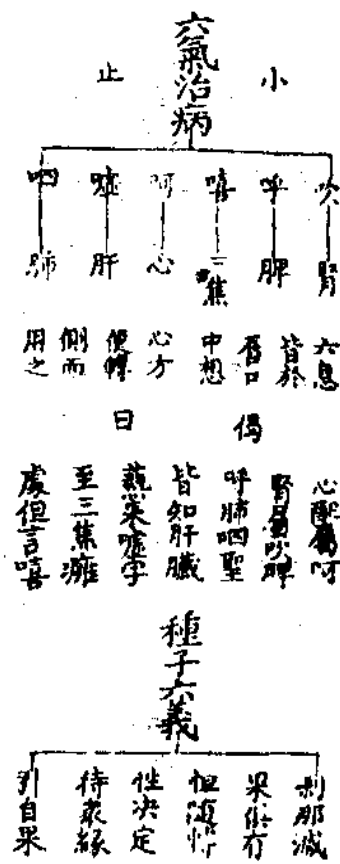 六氣治病
小止
吹 腎
呼 脾
嘻 三焦
呵 心
噓 肝
呬 肺
六息
皆於
唇口
中想
心方
便轉
側而
用之
偈曰
心配屬呵
腎屬吹脾
呼肺呬聖
皆知肝臟
熱來噓字
至三焦壅
處但言嘻
種子六義
剎那滅
果俱有
恒隨轉
性決定
待眾緣
引自果